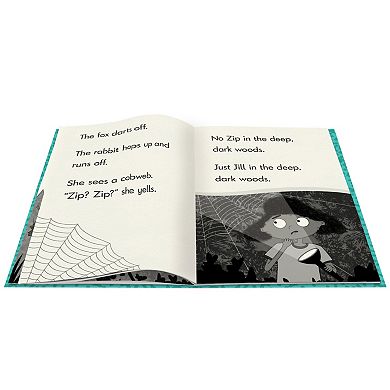 The fox darts off.
The rabbit hops up and
runs off.
She sees a cobweb.
"Zip? Zip?" she yells.
No Zip in the deep,
dark woods.
Just Jill in the deep,
dark woods.